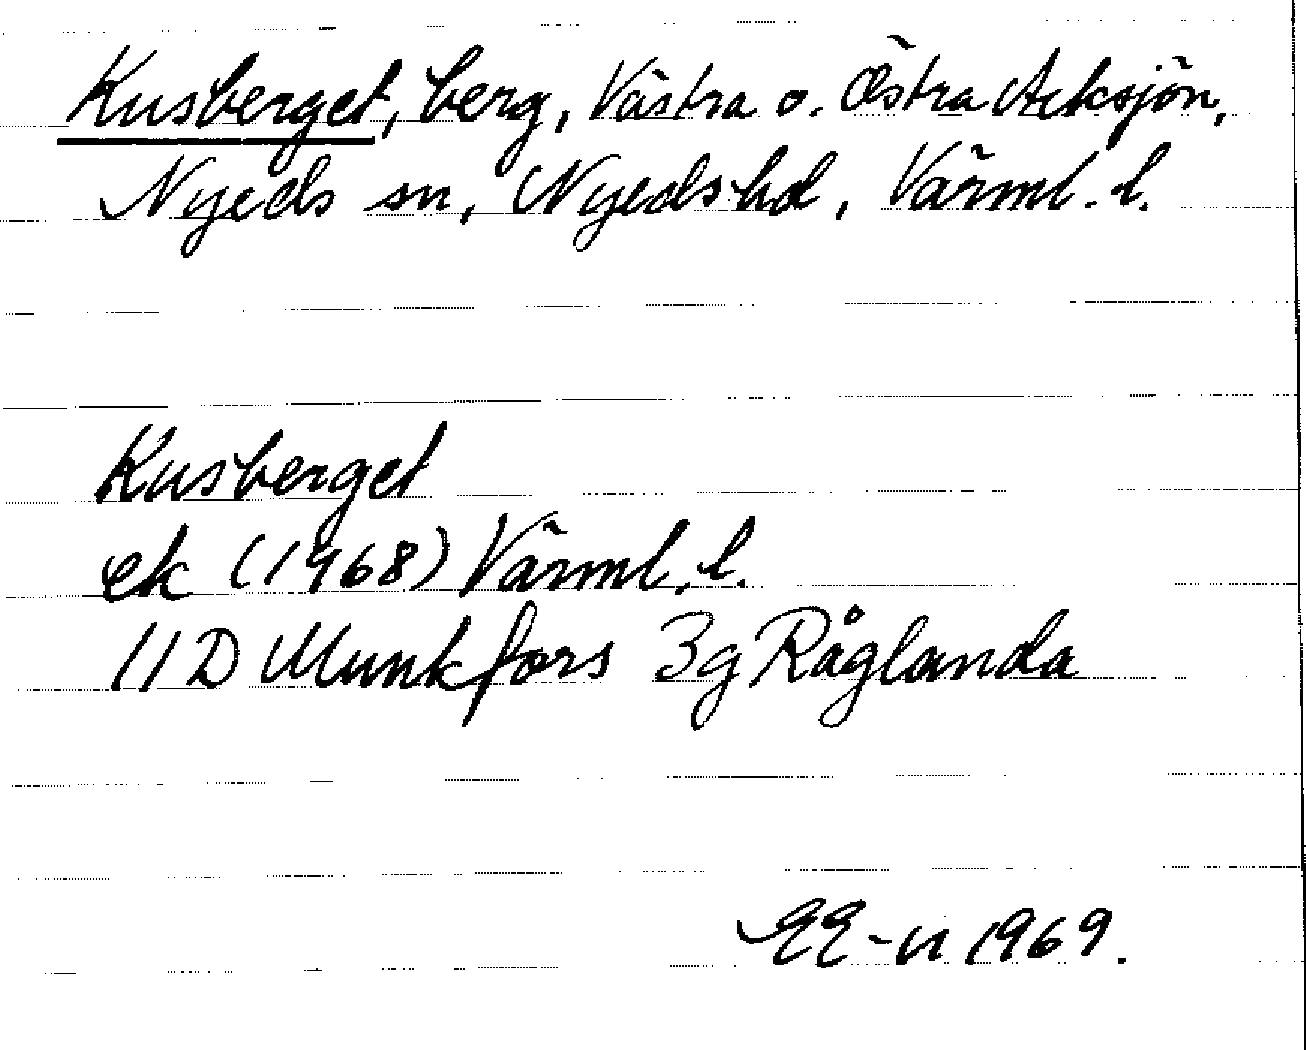 Kusberget, berg, Västra o. Östra Acksjön,
Nyeds sn, Nyedshd, Värml. l.
Kusberget
ek (1968) Värml. l.
11D Munkfors 3g Råglanda
EE-n 1969.